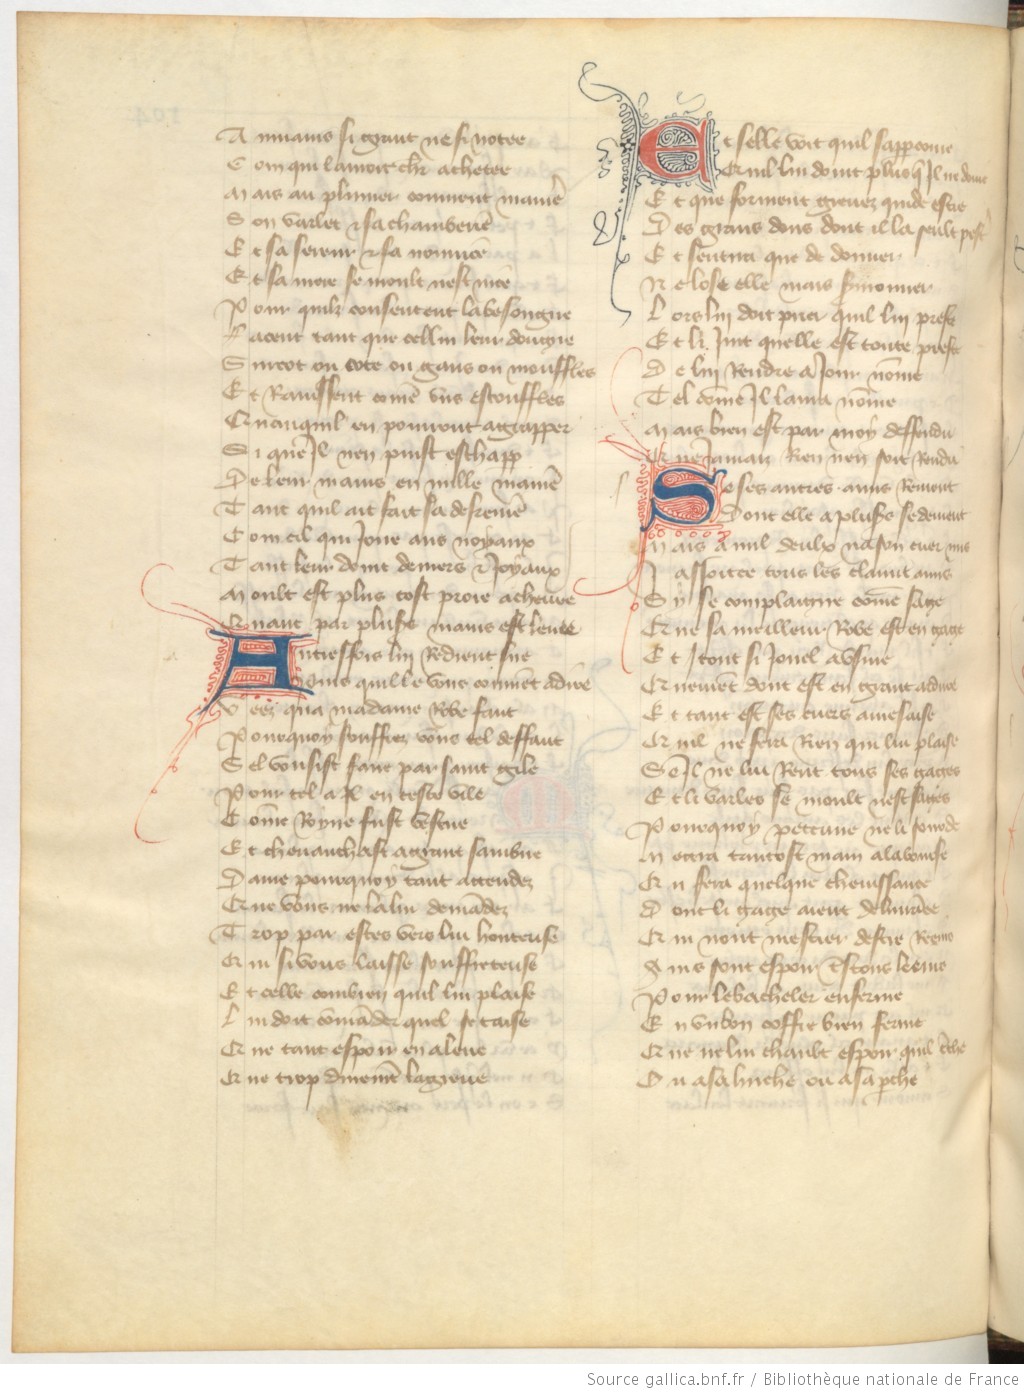 A nnuaus si grant ne si notee
C om qui lauroit chr achetee
M ais au plumer couvient maniē
S on varlet & sa chamberiē
E t sa sereur & sa nourricē
E t sa mere se moult nest nicē
P our quilz consentent la besongne
F acent tant que cellui leur dongne
S urcot ou cote ou gans ou mouffles
E t Ravissent comē vns escouffles
Q uanquil en pourront agrapper
S i que Jl nen puist eschapp
D e leur mains en nulle maniē
T ant quil ait fait sa derreniē
C om cil qui Joue aus noyaux
T ant leur doint deniers & Joyaux
M oult est plus tost proie achevee
Q uant par pluss mains est levee
A utresfois lui Redient sire
Puis quil le vous couvient a dire
V eez qua madame Robe faut
P ourquoy souffrez vous cel deffaut
S el voulsist faire par saint gile
P our tel a Jl en ceste vile
C ome Royne fust vestue
E t chevauchast a grant sambue
D ame pourquoy tant attendez
Q ue vous ne la lui demādez
T rop par estes vers lui honteuse
Q ui si vous laisse souffreteuse
E t celle combien quil lui plaise
L ui doit cōmāder quel se taise
Q ue tant espoir en a levé
Q ue trop durement la grevé
E t selle voit quil sappercoive
Q uil lui doint plus q̄ Jl ne doive
E t que forment grevez cuide estre
D es grans dons dont il la seult pestr
E t sentira que de donner
N e lose elle mais sermonner
L ors lui doit prier quil lui preste
E t li Jurt quelle est toute preste
D e lui Rendre a Jour nōme
T el cōme Jl laura nōme
M ais bien est par moy deffendu
Q ue Jamais Rien nen soit Rendu
S e ses autres amis Revient
Dont elle a pluss se devient
M ais a nul deulx na son cuer mis
J a soit ce tous les claint amis
S y se complaigne cōme sage
Q ue sa meilleur Robe est en gage
E t Jtout si Jouel a vsure
Q uement dont est en grant ardure
E t tant est ses cuers a mesaise
Q uil ne fera Rien qui lui plaise
S e Jl ne lui Rent tous ses gages
E t li varles se moult nest sages
P ourquoy pecune ne li sourde
M ettra tantost main a la bourse
Q u fera quelque chevissance
D ont li gage aient delivrāce
Q ui nont mestier destre Reems
A ins sont espoir testous leeins
P our le bacheler enserrez
E n vn bon coffre bien ferrez
Q ue ne lui chault espoir quil cerche
O u a sa huche ou a sa perche
Source gallica.bnf.fr / Bibliothèque nationale de France